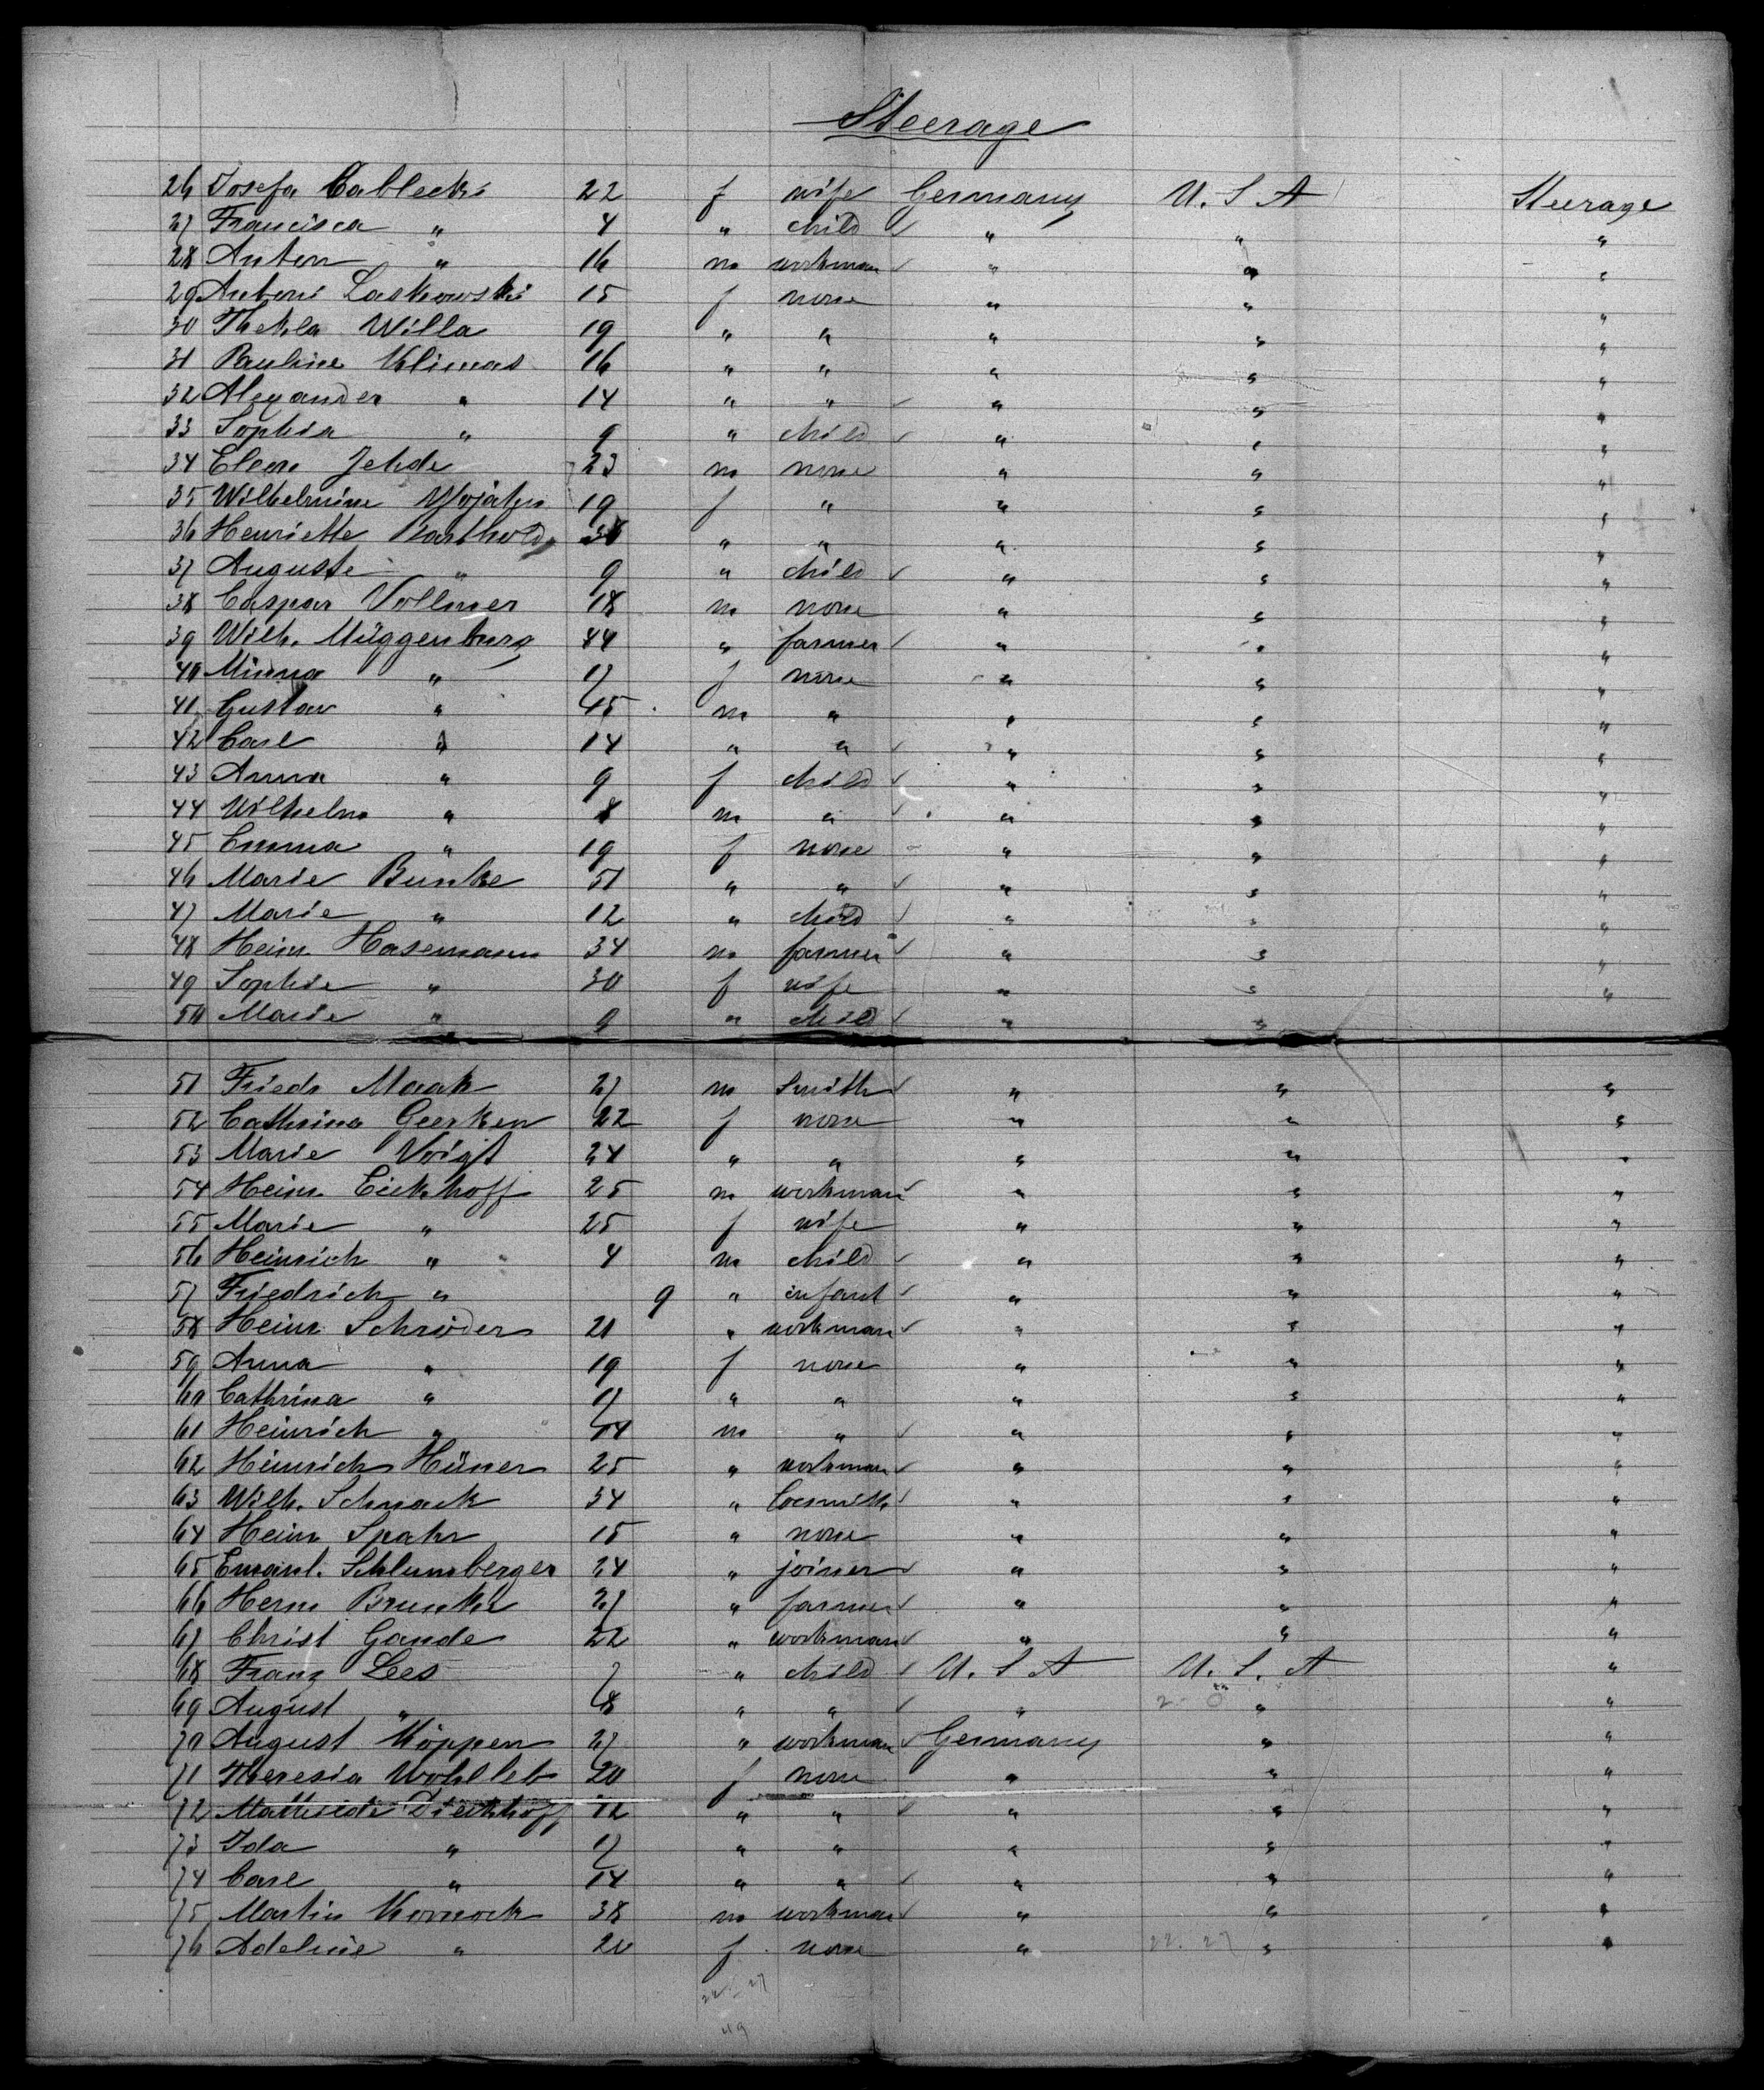 Steerage
26 Josefa Cablecki 22 f wife Germany U. S. A Steerage
27 Francisca " 4 " child " " "
28 Anton " 16 m workman " " "
29 Antoni Laskowski 15 f none " " "
30 Thekla Willa 19 " " " " "
31 Pauline Klimas 16 " " " " "
32 Alexander " 14 " " " " "
33 Sophia " 9 " child " " "
34 Eleon Jehde 23 m none " " "
35 Wilhelmine Wojahn 19 f " " " "
36 Henriette Barthold " " " " "
37 Auguste " 9 " child " " "
38 Caspar Vollmer 18 m none " " "
39 Wilh. Müggenburg 44 " farmer " " "
40 Minna " 17 f none " " "
41 Gustav " 15 m " " " "
42 Carl " 14 " " " " "
43 Anna " 9 f child " " "
44 Wilhelm " 8 m " " " "
45 Emma " 19 f none " " "
46 Marie Bunke 51 " " " " "
47 Marie " 12 " child " " "
48 Heinr. Hasemann 34 m farmer " " "
49 Sophie " 30 f wife " " "
50 Marie " 9 " child " " "
51 Friedr Maak 27 m Smith " " "
52 Cathrina Geerken 22 f none " " "
53 Marie Voigt 24 " " " " "
54 Heinr. Eickhoff 25 m workman " " "
55 Marie " 25 f wife " " "
56 Heinrich " 4 m child " " "
57 Friedrich " 9 " infant " " "
58 Heinr Schröder 21 " workman " " "
59 Anna " 19 f none " " "
60 Cathrina " 17 " " " " "
61 Heinrich " 14 m " " " "
62 Heinrich Hüner 25 " workman " " "
63 Wilh. Schnack 34 " locsmith " " "
64 Heinr Spahr 15 " none " " "
65 Emanl. Schlumberger 24 " joiner " " "
66 Herm Brunke 27 " farmer " " "
67 Christ Gande 22 " workman " " "
68 Franz Lees 7 " child U. S. A U. S. A "
69 August " 8 " " " " "
70 August Köppen 27 " workman Germany " "
71 Theresia Wohlleb 20 f none " " "
72 Dieckhoff 12 " " " " "
73 Ida " 17 " " " " "
74 Carl " 14 " " " " "
75 Martin Kornock 38 m workman " " "
76 Adeline " 20 f none " " "
22. 27
49